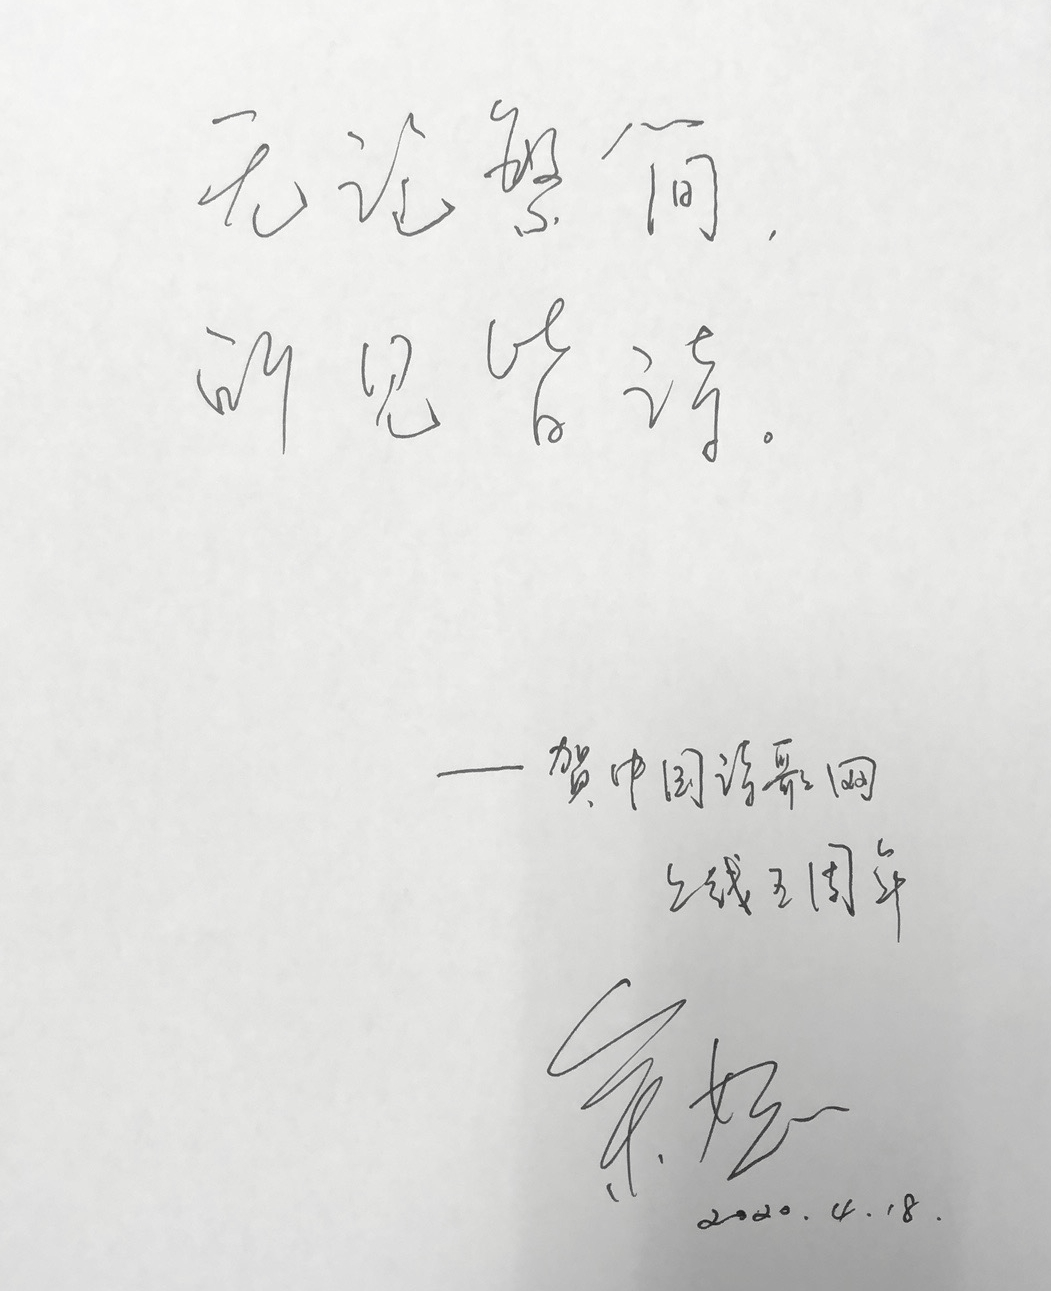 无论繁简，
所见皆诗。
——贺中国诗歌网
上线五周年
2020.4.18.